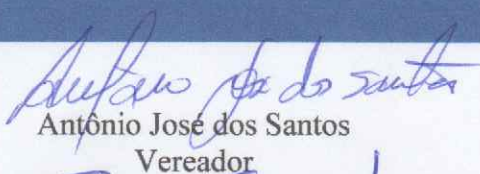 Antônio José dos Santos
Antônio José dos Santos
Vereador